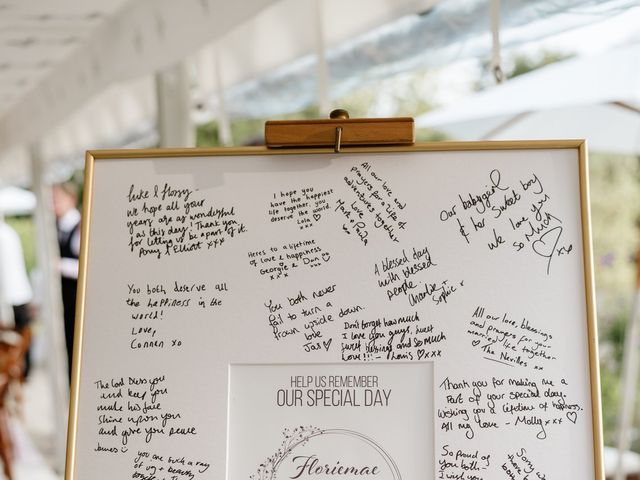 Luke & Flossy -
We hope all your
years are as wonderful
as this day! Thank you
for letting us be apart of it.
Penny & Elliott xxx
I hope you
have the happiest
life together, you
deserve the world.
Lola
xxx
All our love and
prayers for a life of
adventures together
Love
Mark & Paula
xx
Our babygirl
& her Sweet boy
we love you
so Much
x
Heres to a lifetime
of love & happiness
Georgie & Dan
xxx
A blessed day
with blessed
people
Charlie +
Sophie x
You both deserve all
the happiness in the
world!
Love,
Connan xo
You both never
fail to turn a
frown upside down.
love
Jai
Don't forget how much
I love you guys, sweet
sweet blessings and so much
Love!!! - Lewis xxx
All our love, blessings
and prayers for your
married life together
- The Nevilles xx
The Lord bless you
and keep you
make his face
shine upon you
and give you peace
James
you are such a ray
of joy + beauty
HELP US REMEMBER
OUR SPECIAL DAY
Floriemae
Thank you for making me a
Part of your special day.
Wishing you a lifetime of happiness.
All my love - Molly xx
So Proud of
you both -
I wish you
Sorry
there